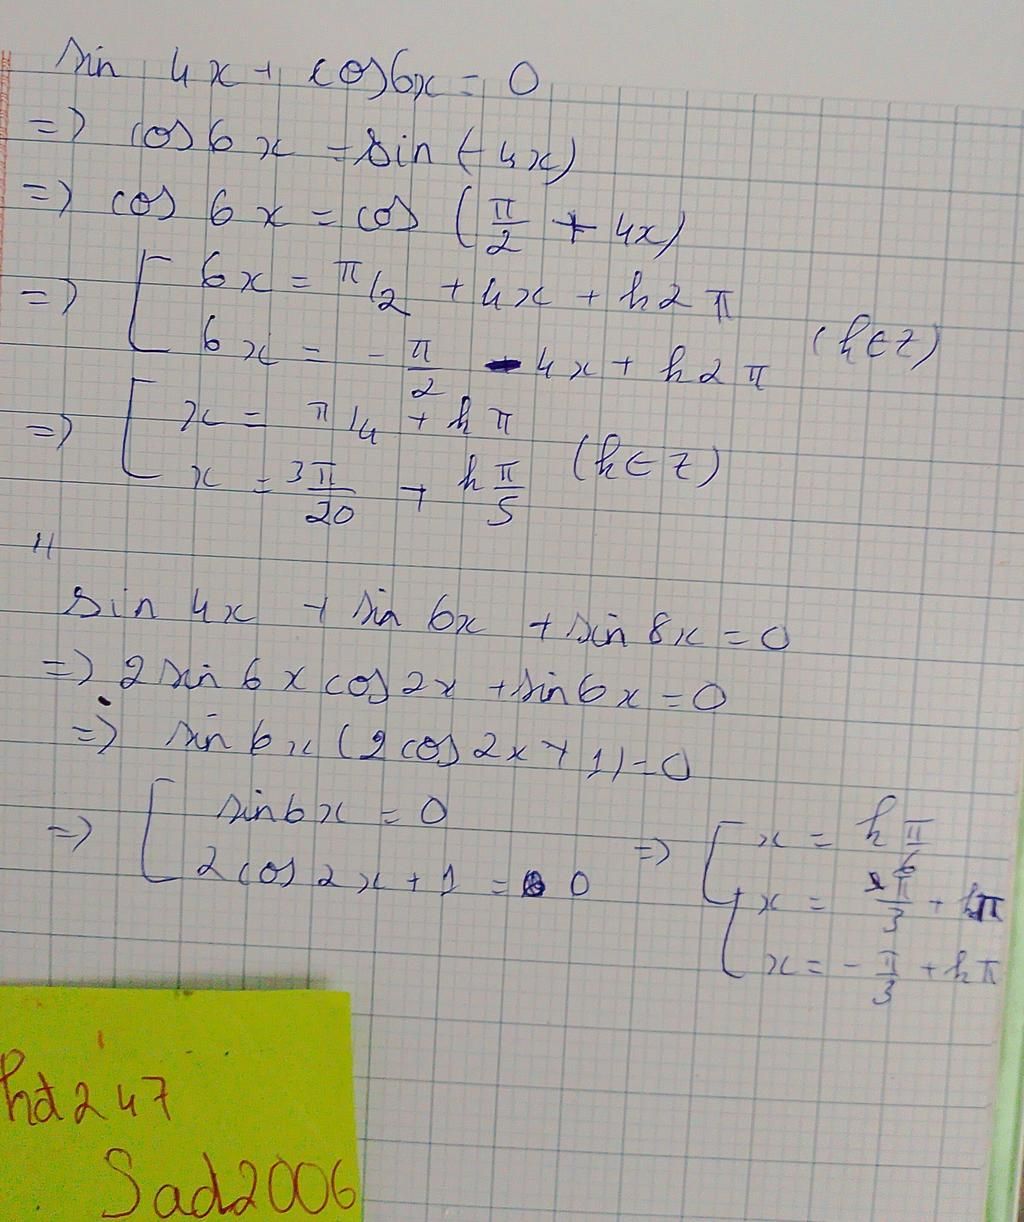 sin 4x + cos6x = 0
=> cos 6x = sin (-4x)
=> cos 6x = cos (π/2 + 4x)
=> [ 6x = π/2 + 4x + k2π
6x = -π/2 - 4x + k2π (k∈Z)
=> [ x = π/4 + kπ
x = 3π/20 + kπ/5 (k∈Z)
sin 4x + sin 6x + sin 8x = 0
=> 2 sin 6x cos 2x + sin 6x = 0
=> sin 6x (2 cos 2x + 1) = 0
=> [ sin6x = 0
2cos 2x + 1 = 0
=> [ x = kπ/6
x = π/3 + kπ
x = -π/3 + kπ
hd247
Sad2006